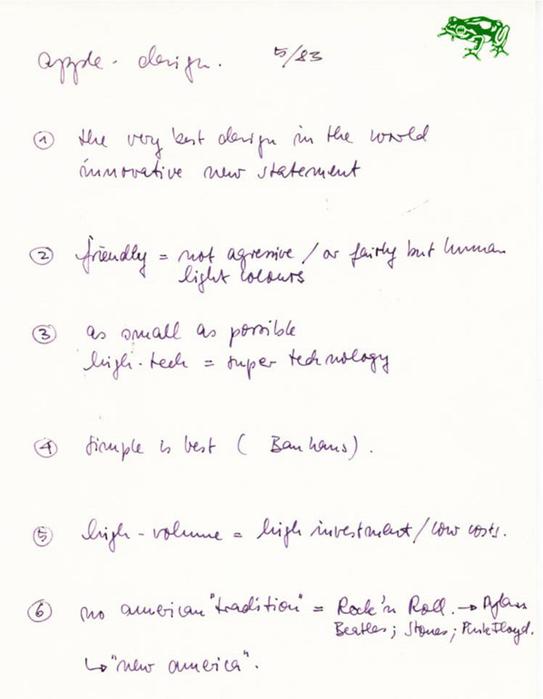 apple - design. 5/83
① the very best design in the world
innovative new statement
② friendly = not agressive / or fairly but human
light colours
③ as small as possible
high-tech = super technology
④ simple is best ( Bauhaus ) .
⑤ high - volume = high investment / low costs.
⑥ no american "tradition" = Rock'n Roll. → Dylan
Beatles; Stones; Pink Floyd.
↳ "new america".